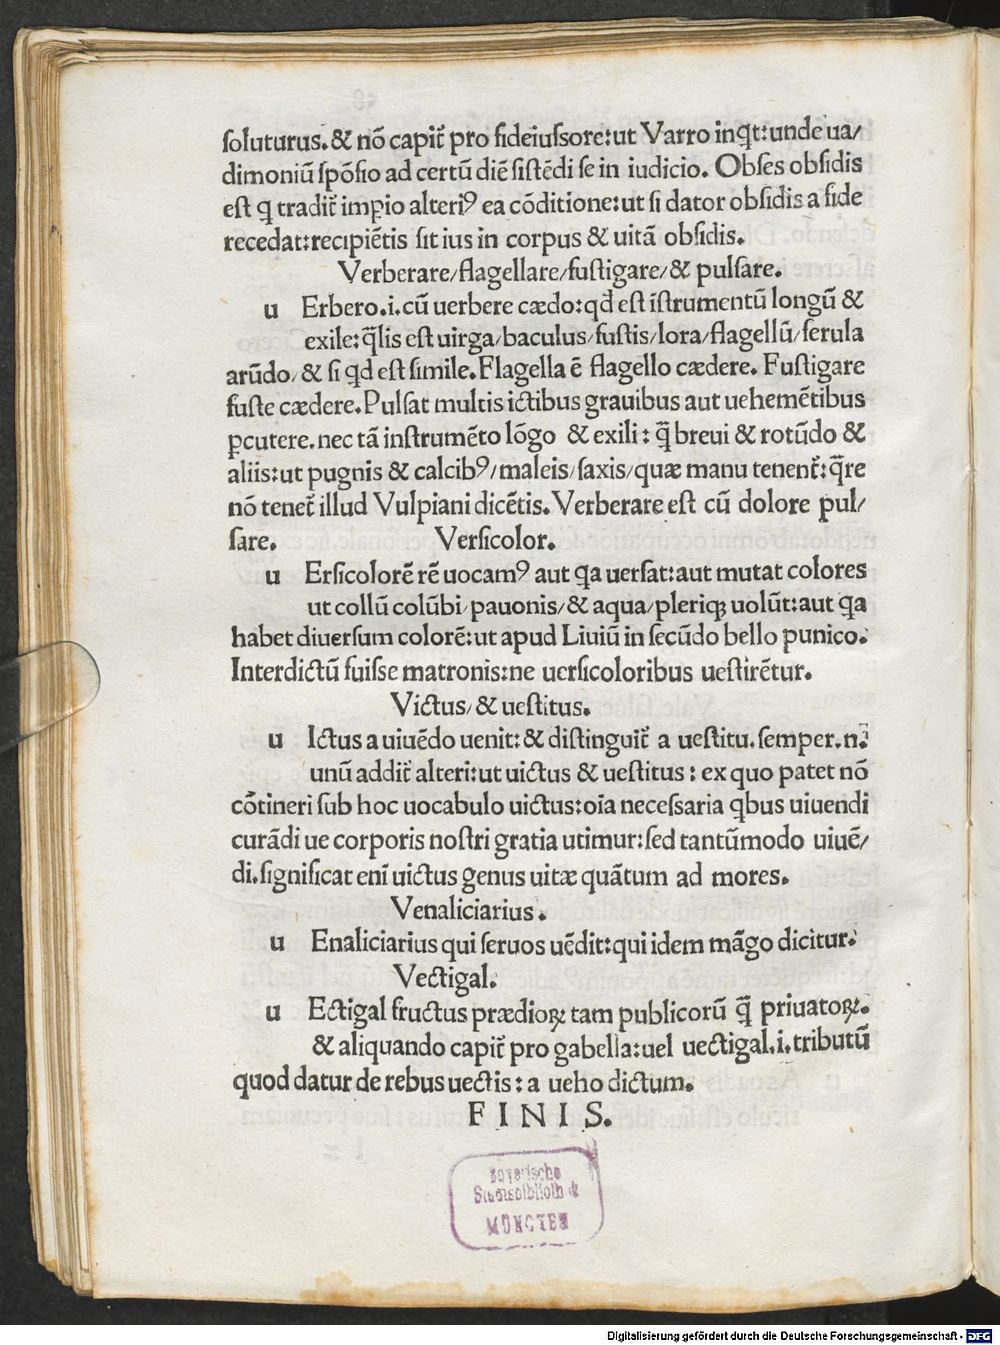 ſoluturus. & nō capit᷑ pro fideiuſſore: ut Varro inqt: unde ua/
dimoniū ſpōſio ad certū diē ſiſtēdi ſe in iudicio. Obſes obſidis
eſt q tradit᷑ imꝑio alteriꝰ ea cōditione: ut ſi dator obſidis a fide
recedat: recipiētis ſit ius in corpus & uitā obſidis.
Verberare/flagellare/fuſtigare/& pulſare.
u Erbero.i.cū uerbere cædo: qd̄ eſt īſtrumentū longū &
exile: q̄lis eſt uirga/baculus/fuſtis/lora/flagellū/ferula
arūdo/& ſi qd eſt ſimile. Flagella ē flagello cædere. Fuſtigare
fuſte cædere. Pulſat multis ictibus grauibus aut uehemētibus
ꝑcutere. nec tā inſtrumēto lōgo & exili: q̄ breui & rotūdo &
aliis: ut pugnis & calcibꝰ/maleis/ſaxis/quæ manu tenent᷑: q̄re
nō tenet᷑ illud Vulpiani dicētis. Verberare eſt cū dolore pul/
ſare. Verſicolor.
u Erſicolorē rē uocamꝰ aut qa uerſat: aut mutat colores
ut collū colūbi/pauonis/& aqua/pleriqꝫ uolūt: aut qa
habet diuerſum colorē: ut apud Liuiū in ſecūdo bello punico.
Interdictū fuiſſe matronis: ne uerſicoloribus ueſtirētur.
Victus/& ueſtitus.
u Ictus a uiuēdo uenit: & diſtinguit᷑ a ueſtitu. ſemper.n.
unū addit᷑ alteri: ut uictus & ueſtitus: ex quo patet nō
cōtineri ſub hoc uocabulo uictus: oīa neceſſaria qbus uiuendi
curādi ue corporis noſtri gratia utimur: ſed tantūmodo uiuē/
di. ſignificat enī uictus genus uitæ quātum ad mores.
Venaliciarius.
u Enaliciarius qui ſeruos uēdit: qui idem māgo dicitur.
Vectigal.
u Ectigal fructus prædioꝝ tam publicorū q̄ priuatoꝝ.
& aliquando capit᷑ pro gabella: uel uectigal.i.tributū
quod datur de rebus uectis: a ueho dictum.
FINIS.
Bayerische
Staatsbibliothek
MÜNCHEN
Digitalisierung gefördert durch die Deutsche Forschungsgemeinschaft - DFG